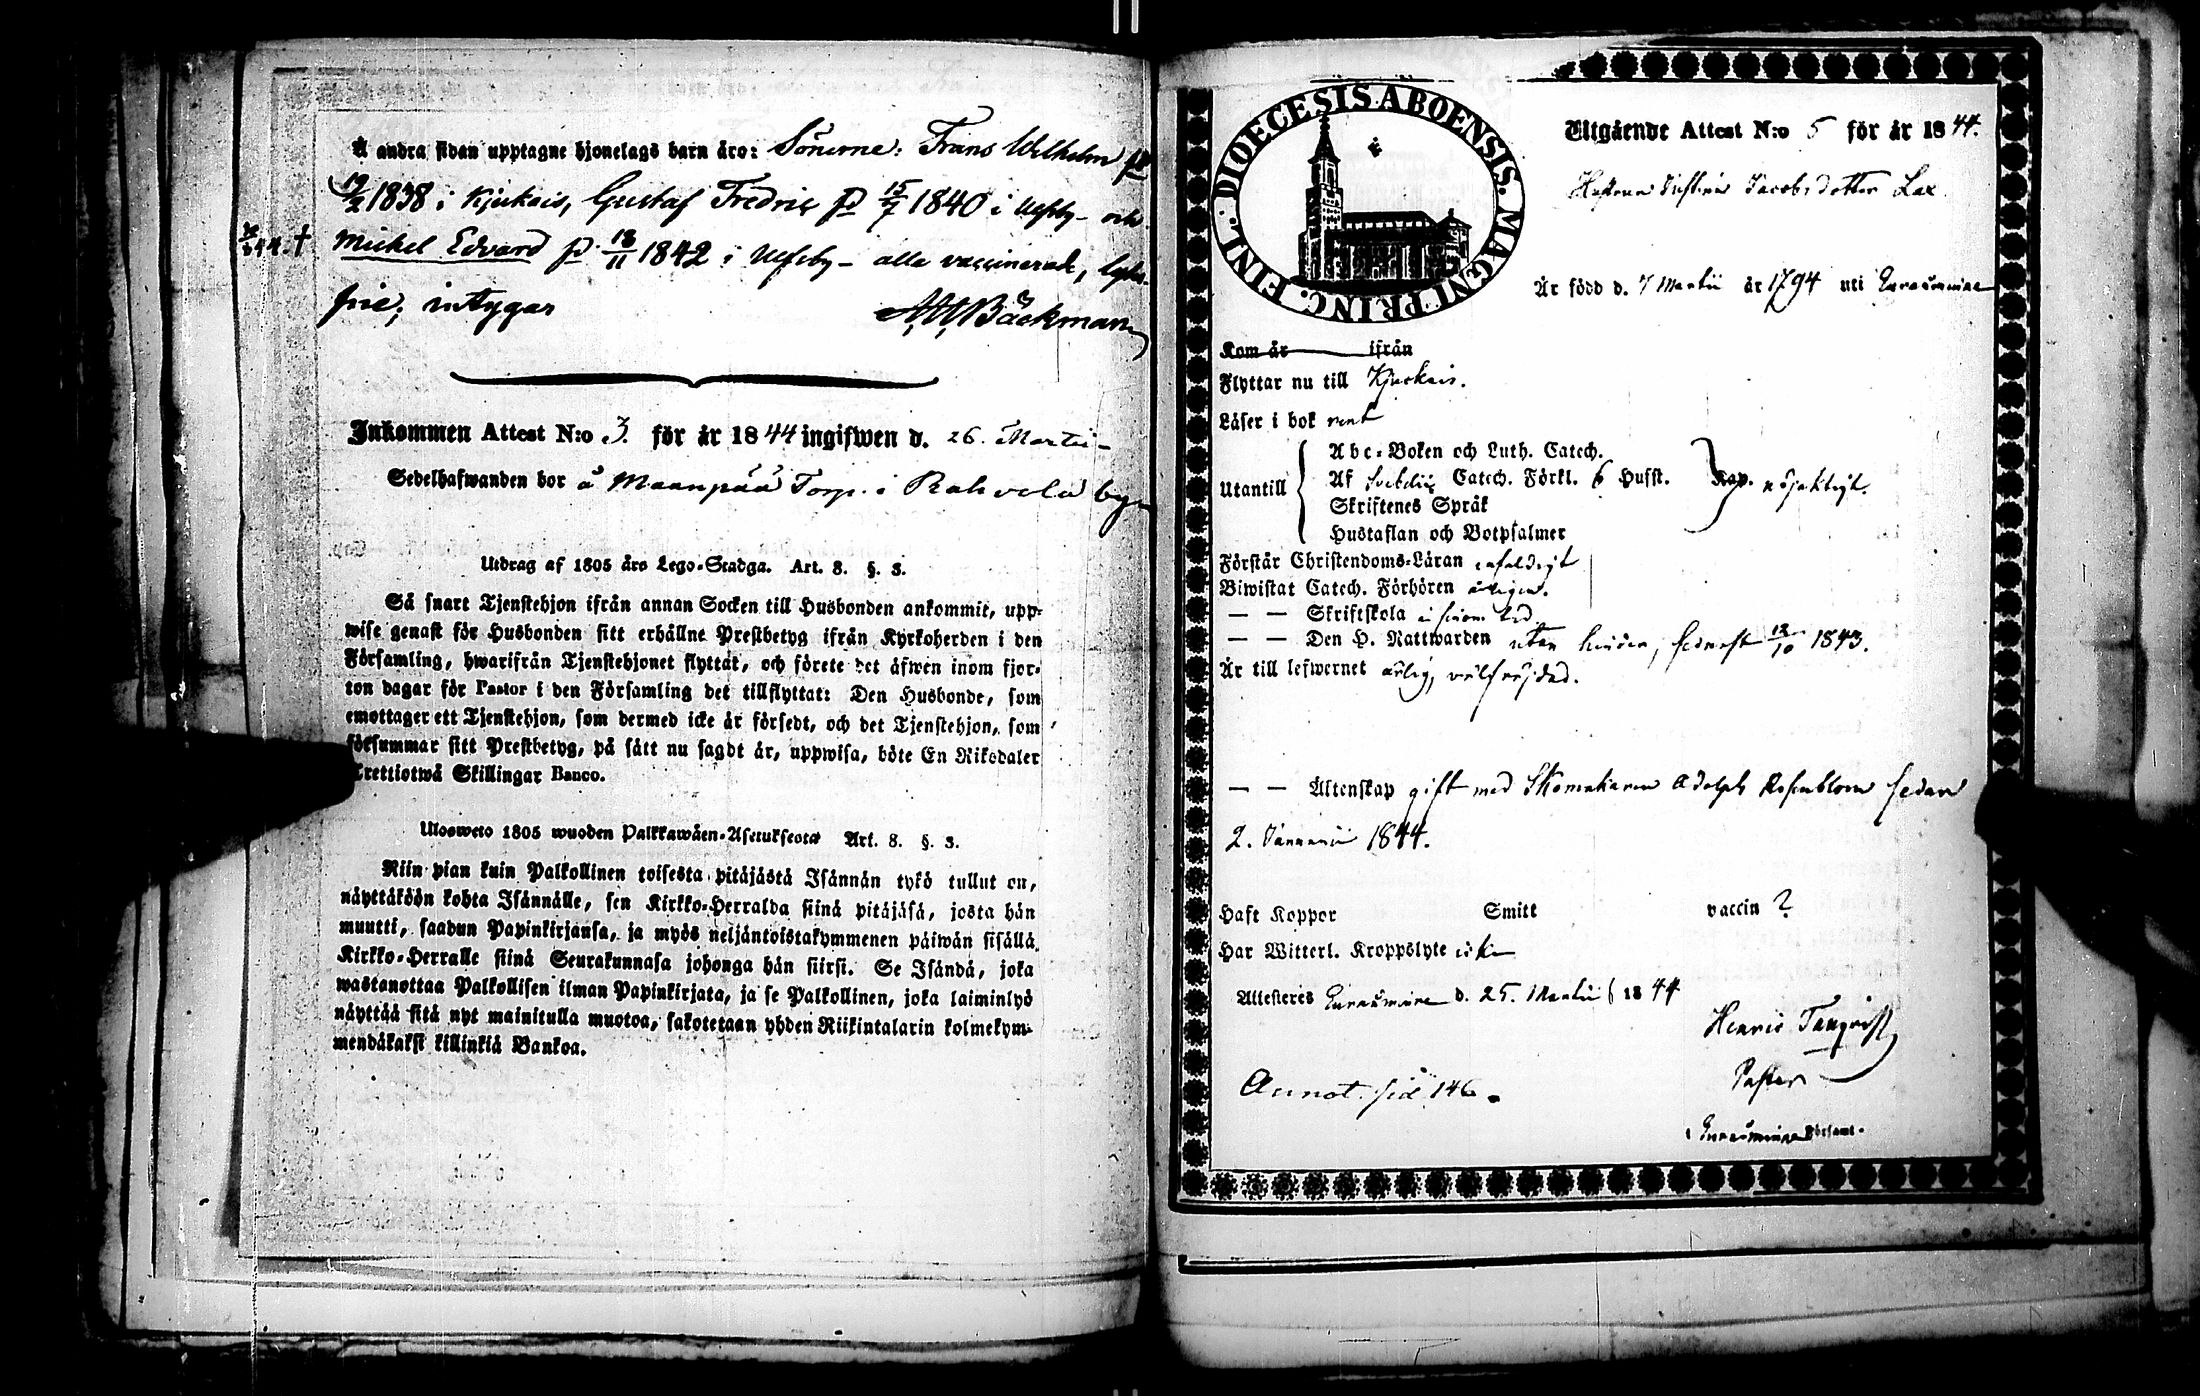 Å andra sidan upptagne hjonelags barn äro: Sönerne: Frans Wilhelm fd
19/2 1838 i Kjukais, Gustaf Fredric fd 15/7 1840 i Ulfsby - och
44. †
Michel Edvard fd 18/11 1842 i Ulfsby - alla vaccinerade, lyte-
frie; intygar
Bäckman
Inkommen Attest N:o 3. för år 1844 ingifwen d. 26. Martii -
Sedelhafwanden bor å Maanpää Torp. i Rahvola by
Utdrag af 1805 års Lego-Stadga. Art. 8. §. 3.
Så snart Tjenstehjon ifrån annan Socken till Husbonden ankommit, upp-
wise genast för Husbonden sitt erhållne Prestbetyg ifrån Kyrkoherden i den
Församling, hwarifrån Tjenstehjonet flyttat, och förete det äfwen inom fjor-
ton dagar för Pastor i den Församling det tillflyttat: Den Husbonde, som
emottager ett Tjenstehjon, som dermed icke är försedt, och det Tjenstehjon, som
försummar sitt Prestbetyg, på sätt nu sagdt är, uppwisa, böte En Riksdaler
Trettiotwå Skillingar Banco.
Ulosweto 1805 wuoden Palkkawäen-Asetuksesta Art. 8. §. 3.
Niin pian kuin Palkollinen toisesta pitäjästä Isännän tykö tullut on,
näyttäköön kohta Isännälle, sen Kirkko-Herralda siinä pitäjäsä, josta hän
muutti, saadun Papinkirjansa, ja myös neljäntoistakymmenen päiwän sisällä
Kirkko-Herralle siinä Seurakunnasa johonga hän siirsi. Se Isändä, joka
wastanottaa Palkollisen ilman Papinkirjata, ja se Palkollinen, joka laiminlyö
näyttää sitä nyt mainitulla muotoa, sakotetaan yhden Riikintalarin kolmekym-
mendäkaksi killinkiä Bankoa.
FINL. DIOECESIS ABOENSIS. MAGNI PRINC.
Utgående Attest N:o 5 för år 1844.
Hustrun Justina Jacobsdotter Lax
Är född d. 7 Martii år 1794 uti Euraåminne
Kom år ifrån
Flyttar nu till Kjuckais.
Läser i bok rent
Utantill
Abc-Boken och Luth. Catech.
Af Svebelii Catech. Förkl. 6 Husst.
Kap. nöjaktigt.
Skriftenes Språk
Hustaflan och Botpsalmer
Förstår Christendoms-Läran enfaldigt
Biwistat Catech. Förhören årligen.
— — Skriftskola i sinom tid
— — Den H. Nattwarden utan hinder, senast 12/10 1843.
Är till lefwernet ärlig, välfrejdad.
— — Äktenskap gift med Skomakaren Adolph Rosenblom sedan
2. Januarii 1844.
Haft Koppor Smitt vaccin ?
Har Witterl. Kroppslyte icke
Attesteres Euraåminne d. 25. Martii 1844
Henric Tanqvist
Pastor
Annot. sid 146.
i Euraåminne Församl.